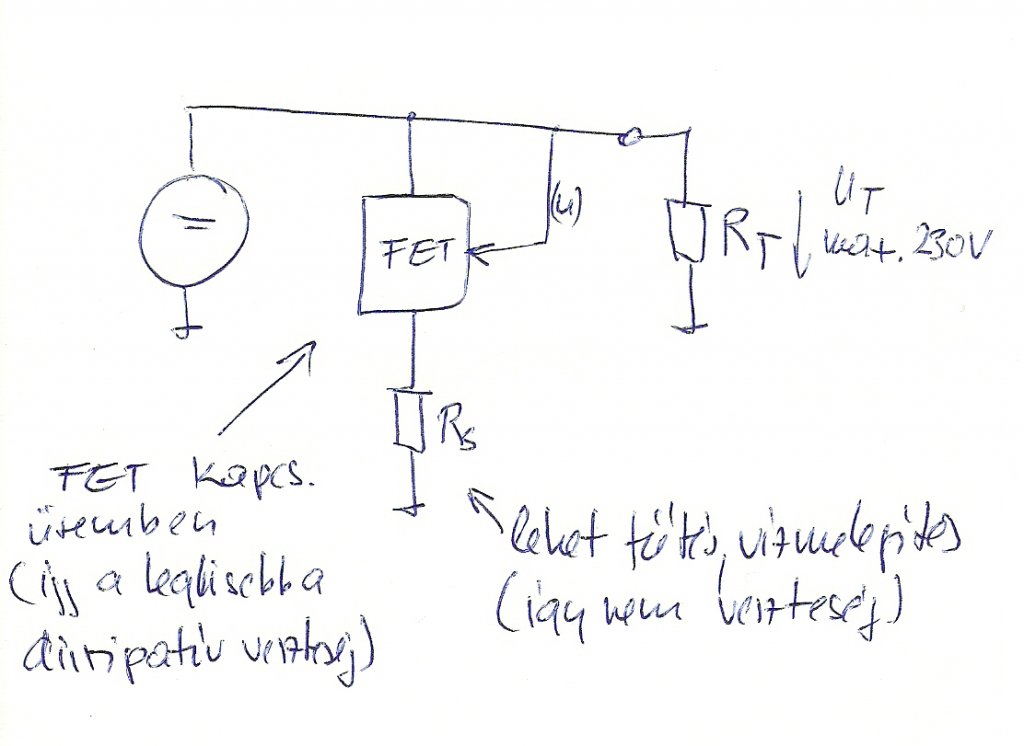 =
FET
(U)
R_T
U_T
max. 230V
R_S
FET kapcs.
üzemben
(így a legkisebb a
disszipatív veszteség)
lehet fűtés, vízmelegítés
(így nem veszteség)